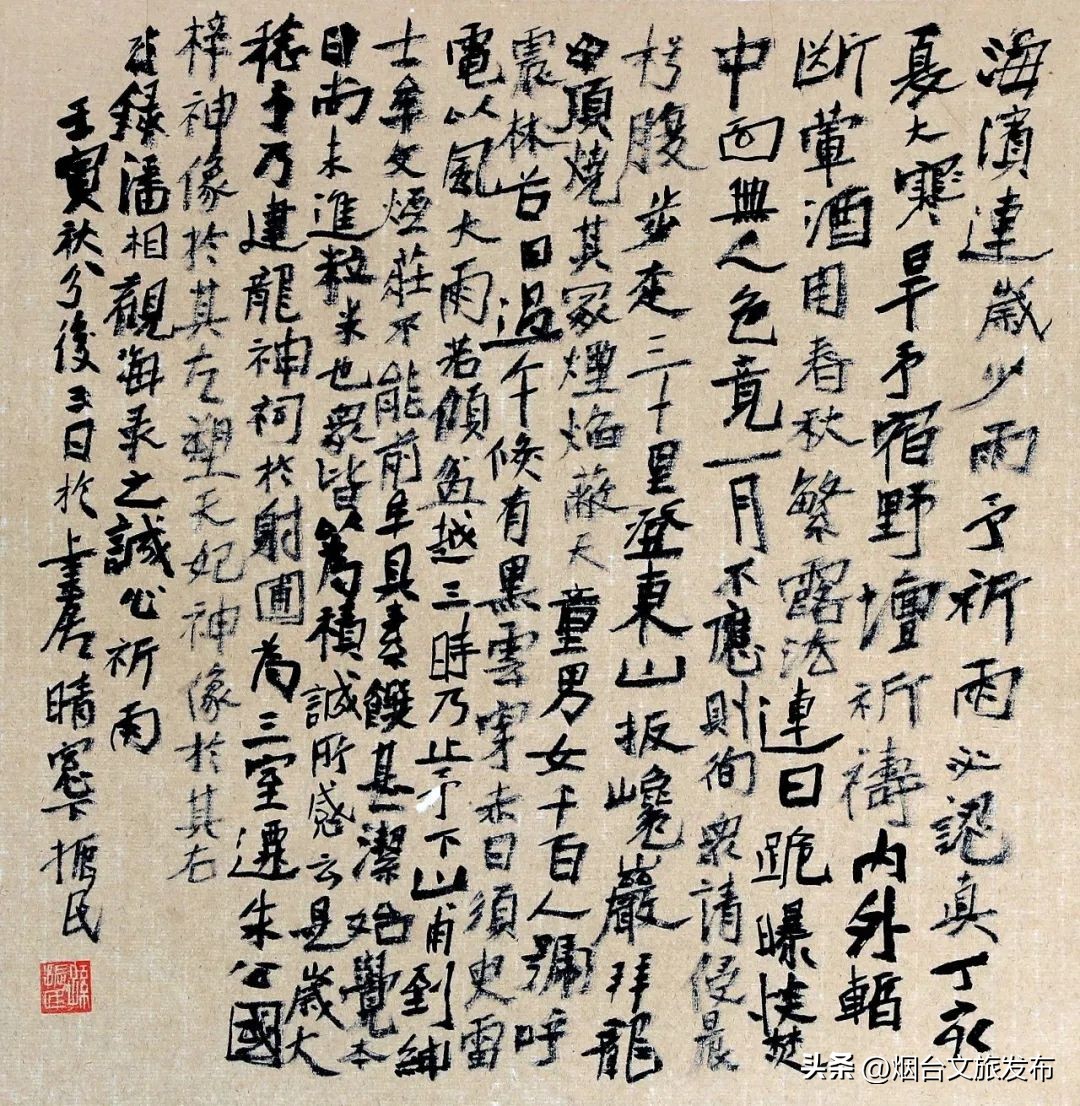 海濱連歲少雨予祈雨必認真丁永
夏大寒旱予宿野壇祈禱內外暫
斷葷酒用春秋繁露法連日跪曝
中面無人色竟一月不應則徇衆請侵晨
枵腹步走三十里登東山扳巉巖拜龍
中頂燒其冢煙焰蔽天童男女千百人號呼
震林谷日過午倏有黑雲穿赤日須臾雷
電以風大雨若傾盆越三時乃止予下山甫到紳
士牟文煙莊不能前牟具素饌甚潔始覺本
日尚未進粒米也衆皆爲積誠所感云是歲大
稔予乃建龍神祠於射圃爲三室遷朱公國
梓神像於其左塑天妃神像於其右
錄潘相觀海錄之誠心祈雨
壬寅秋分後三日於上 居晴窗下振民
头条@烟台文旅发布